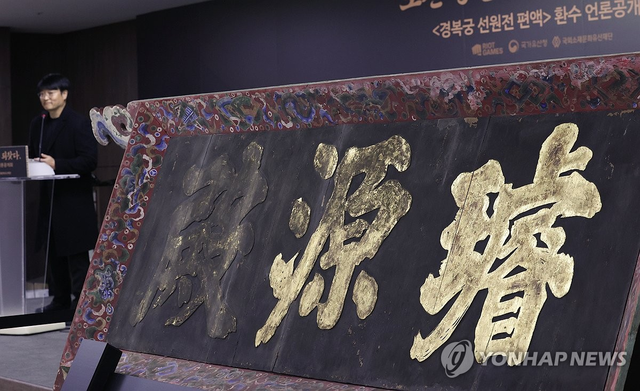 <경복궁 선원전 편액> 환수 언론공개
RIOT GAMES 국가유산청 국외소재문화유산재단
璿源殿
YONHAP NEWS